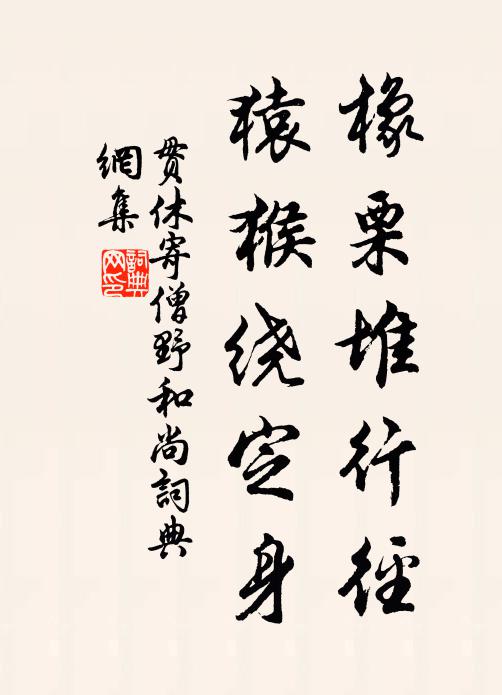 橡栗堆行徑
猿猴绕定身
贯休寄僧野和尚詞典
網集
詞典
网印